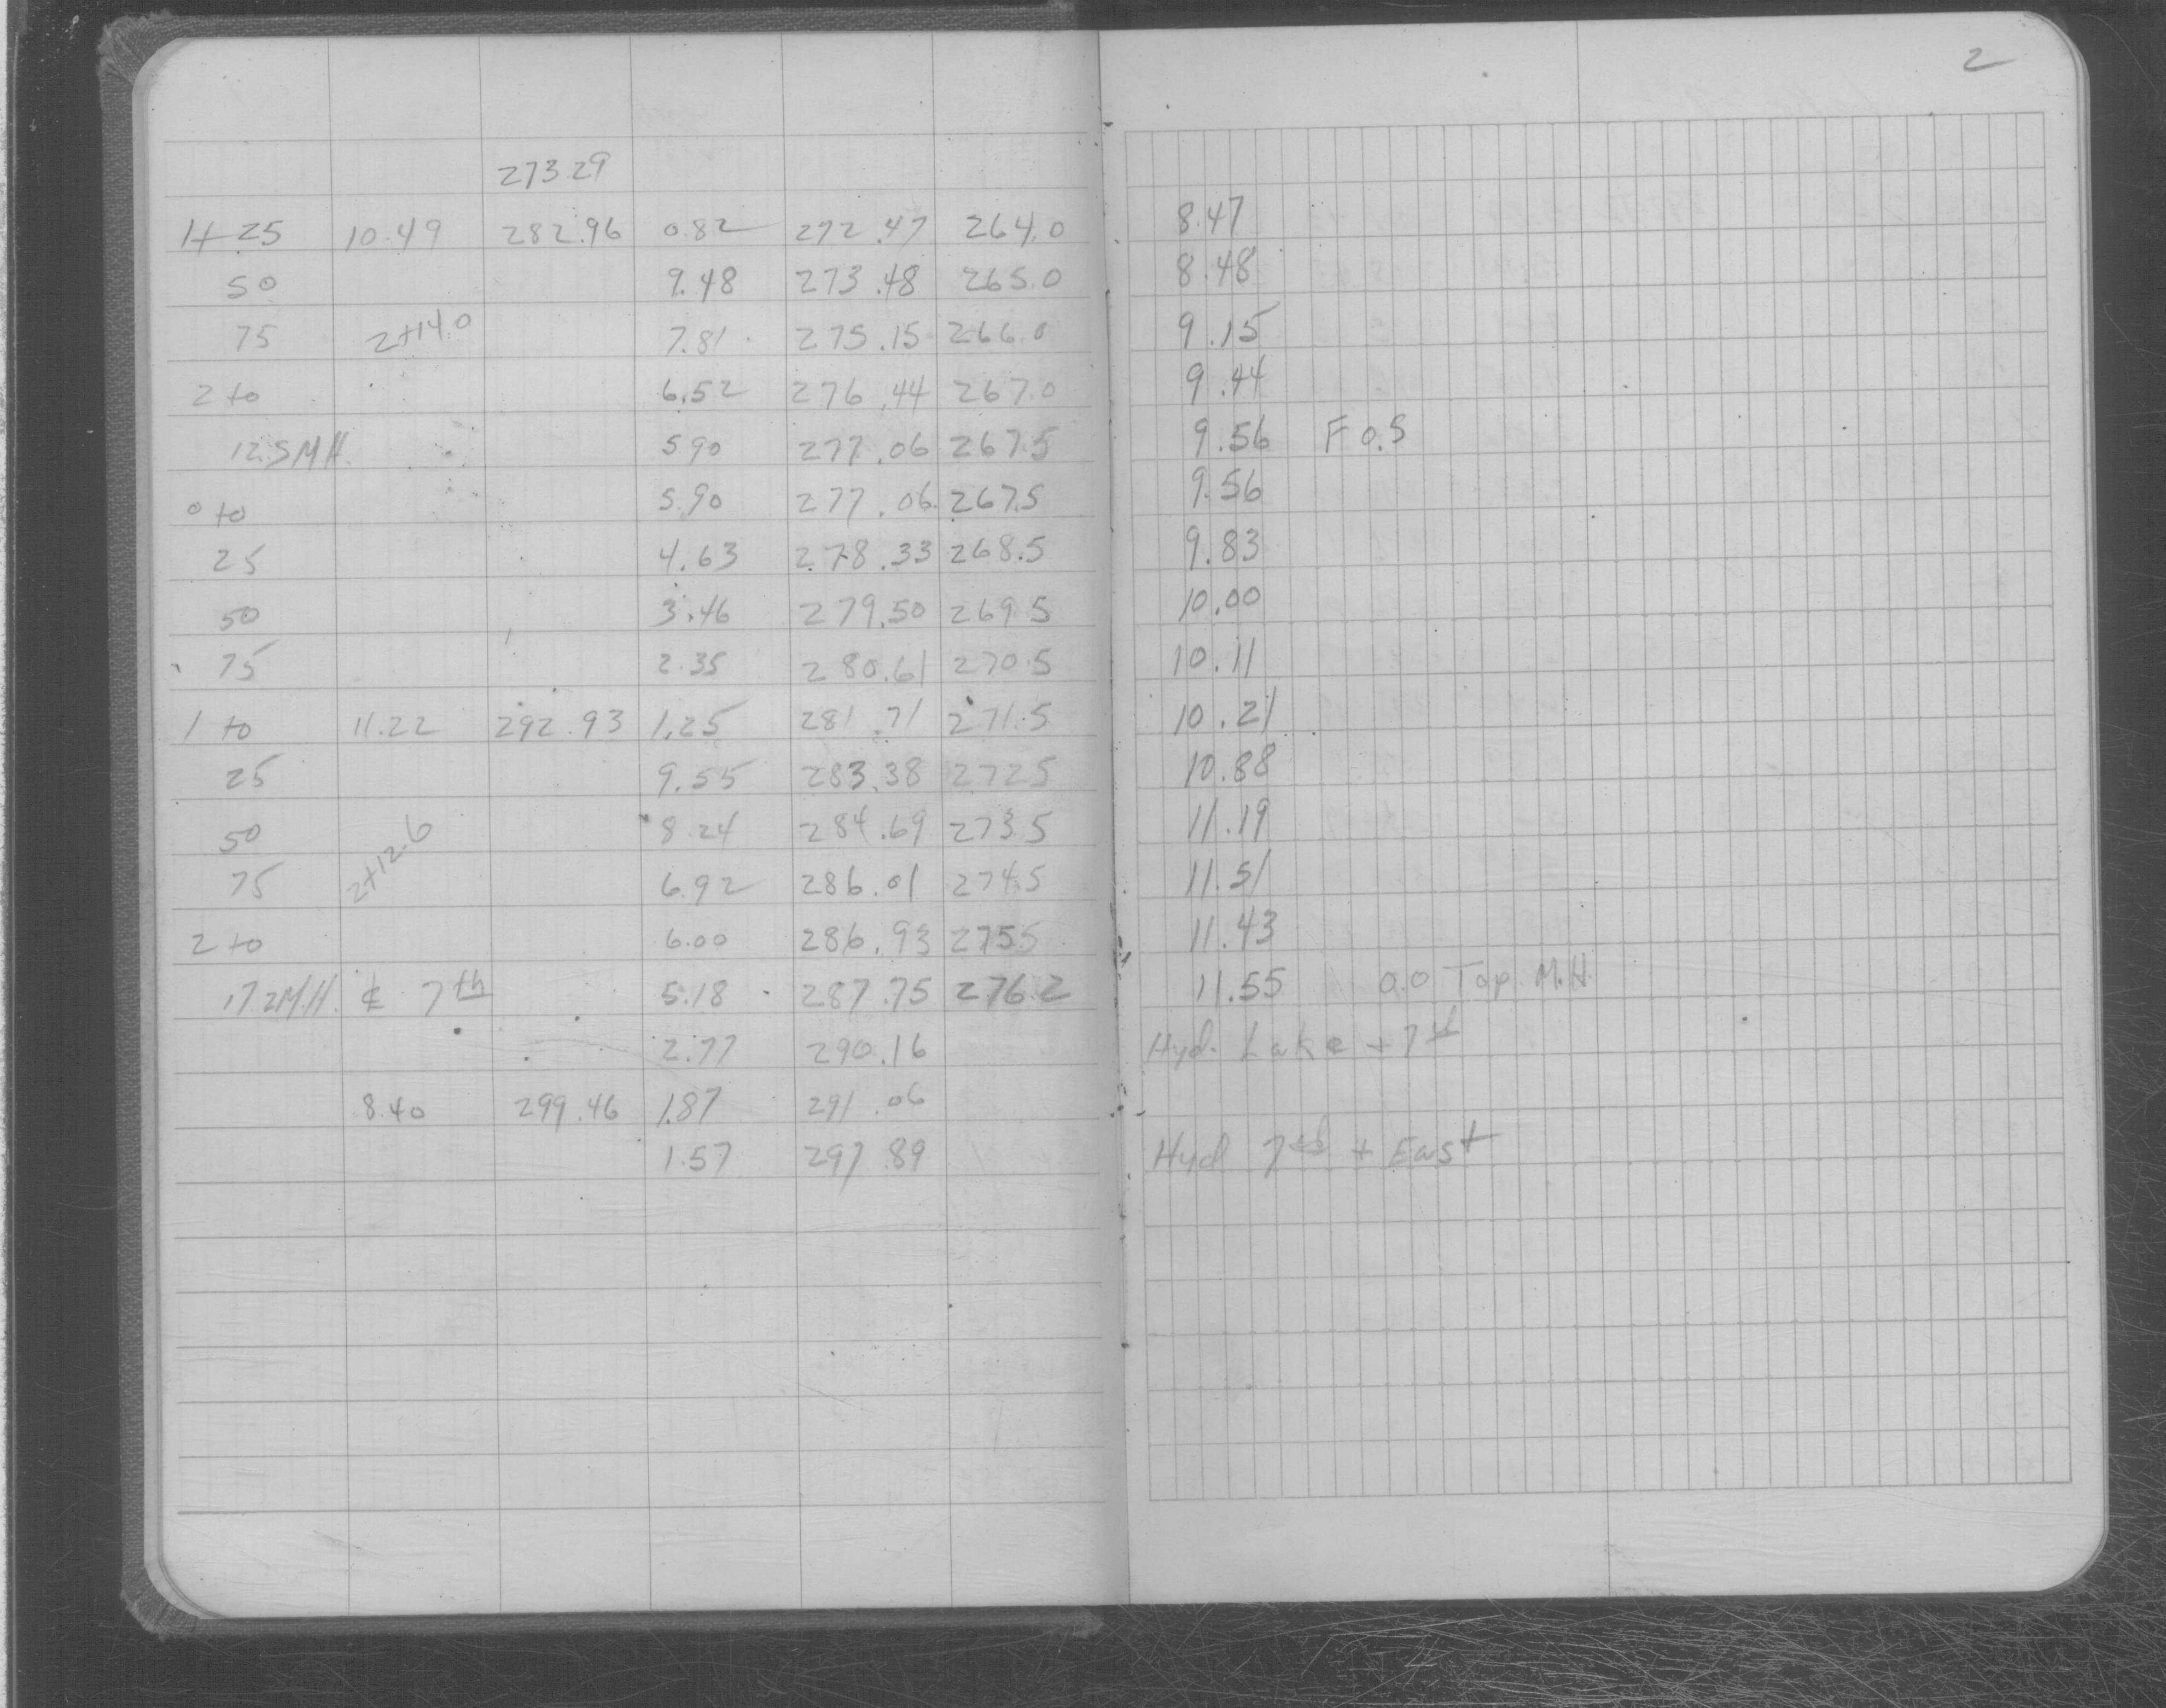 2
273.29
1+25 10.49 282.96 0.82 272.47 264.0 8.47
50 9.48 273.48 265.0 8.48
75 2+14.0 7.81 275.15 266.0 9.15
2+0 6.52 276.44 267.0 9.44
12.5 M.H. 5.90 277.06 267.5 9.56 F 0.5
0+0 5.90 277.06 267.5 9.56
25 4.63 278.33 268.5 9.83
50 3.46 279.50 269.5 10.00
75 2.35 280.61 270.5 10.11
1+0 11.22 292.93 1.25 281.71 271.5 10.21
25 9.55 283.38 272.5 10.88
50 8.24 284.69 273.5 11.19
75 2+12.6 6.92 286.01 274.5 11.51
2+0 6.00 286.93 275.5 11.43
17.2 M.H. ₵ 7th 5.18 287.75 276.2 11.55 0.0 Top M.H.
2.77 290.16 Hyd. Lake + 7th
8.40 299.46 1.87 291.06
1.57 297.89 Hyd 7th + East